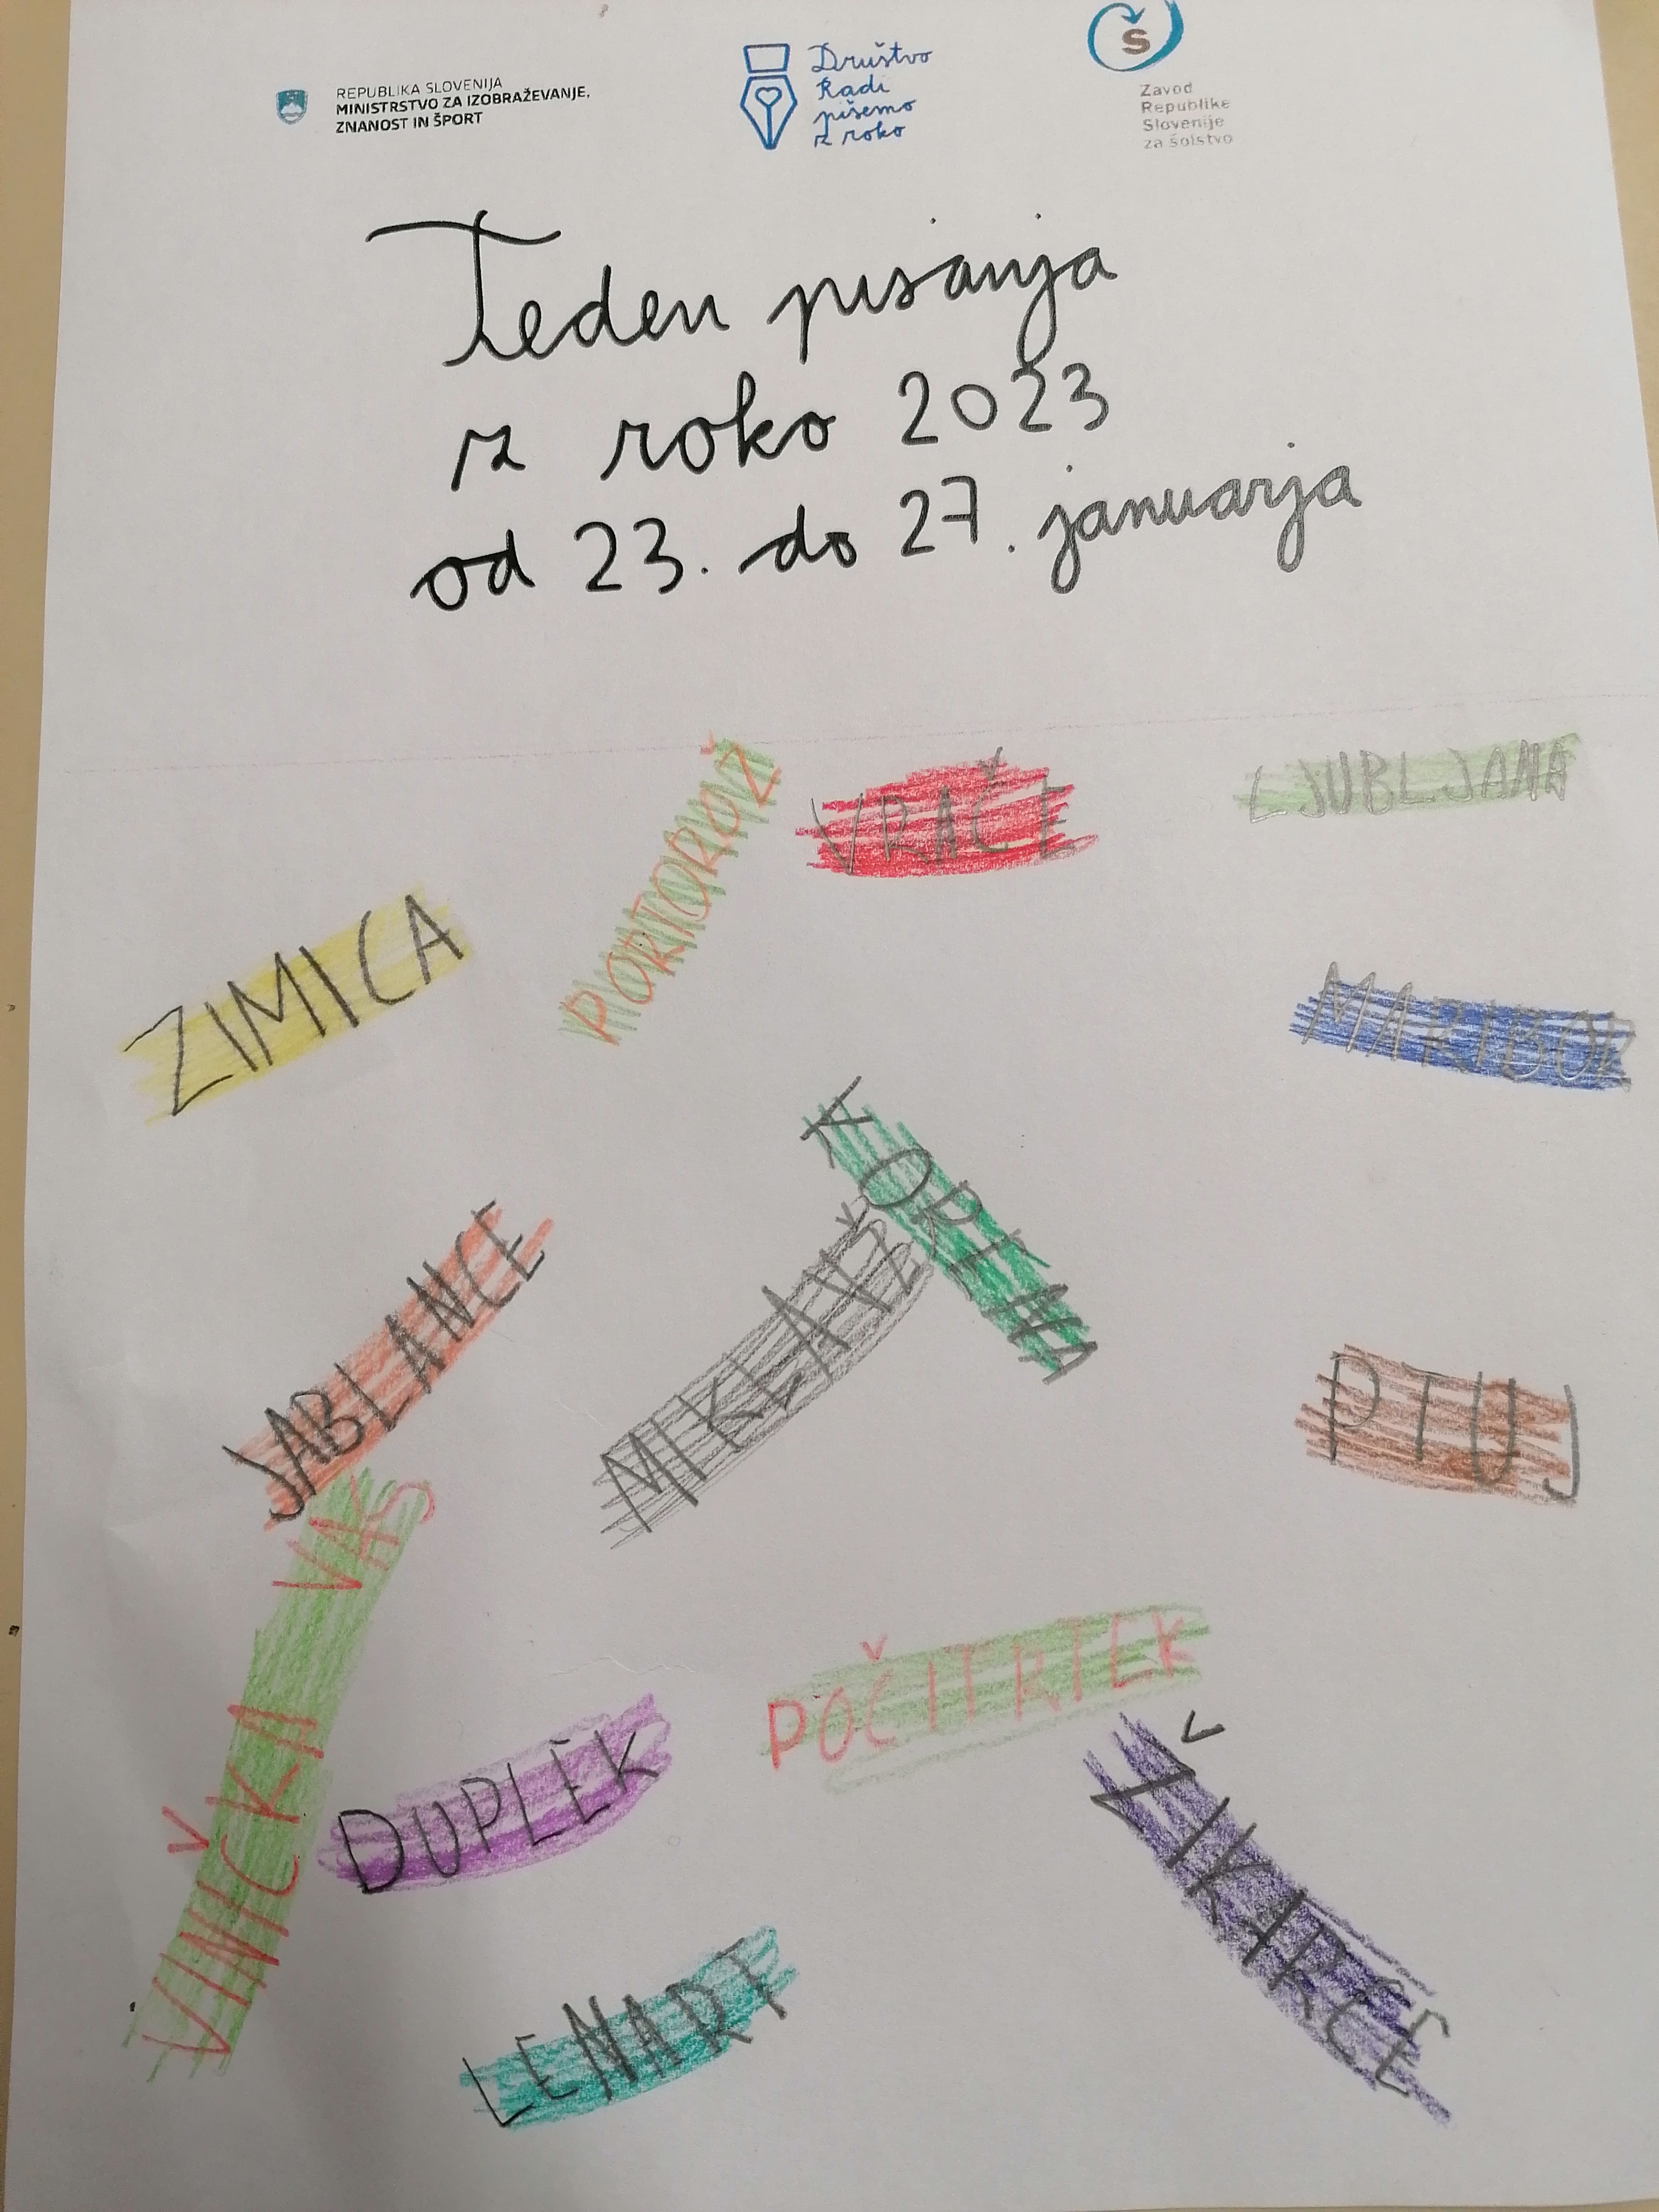 REPUBLIKA SLOVENIJA
MINISTRSTVO ZA IZOBRAŽEVANJE,
ZNANOST IN ŠPORT
Društvo
Radi
pišemo
z roko
Š
Zavod
Republike
Slovenije
za šolstvo
Teden pisanja
z roko 2023
od 23. do 27. januarja
PORTOROŽ
VRAČE
LJUBLJANA
ZIMICA
MARIBOR
KORENA
JABLANCE
MIKLAVŽ
PTUJ
VINIČKA VAS
POČITRTEK
DUPLEK
ŽIKARCE
LENART